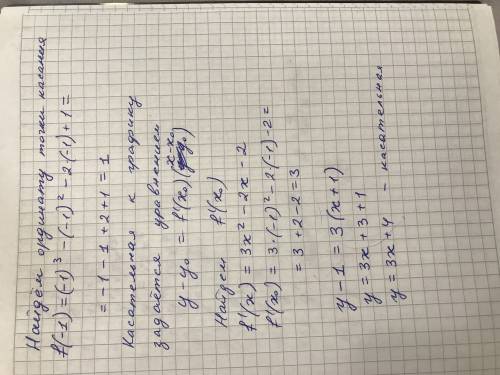 Найдём ординату точки касания
f(-1) = (-1)³ - (-1)² - 2·(-1) + 1 =
= -1 - 1 + 2 + 1 = 1
Касательная к графику
задаётся уравнением
y - y₀ = f'(x₀)(x-x₀)
Найдем f'(x₀)
f'(x) = 3x² - 2x - 2
f'(x₀) = 3·(-1)² - 2·(-1) - 2 =
= 3 + 2 - 2 = 3
y - 1 = 3(x+1)
y = 3x + 3 + 1
y = 3x + 4 - касательная